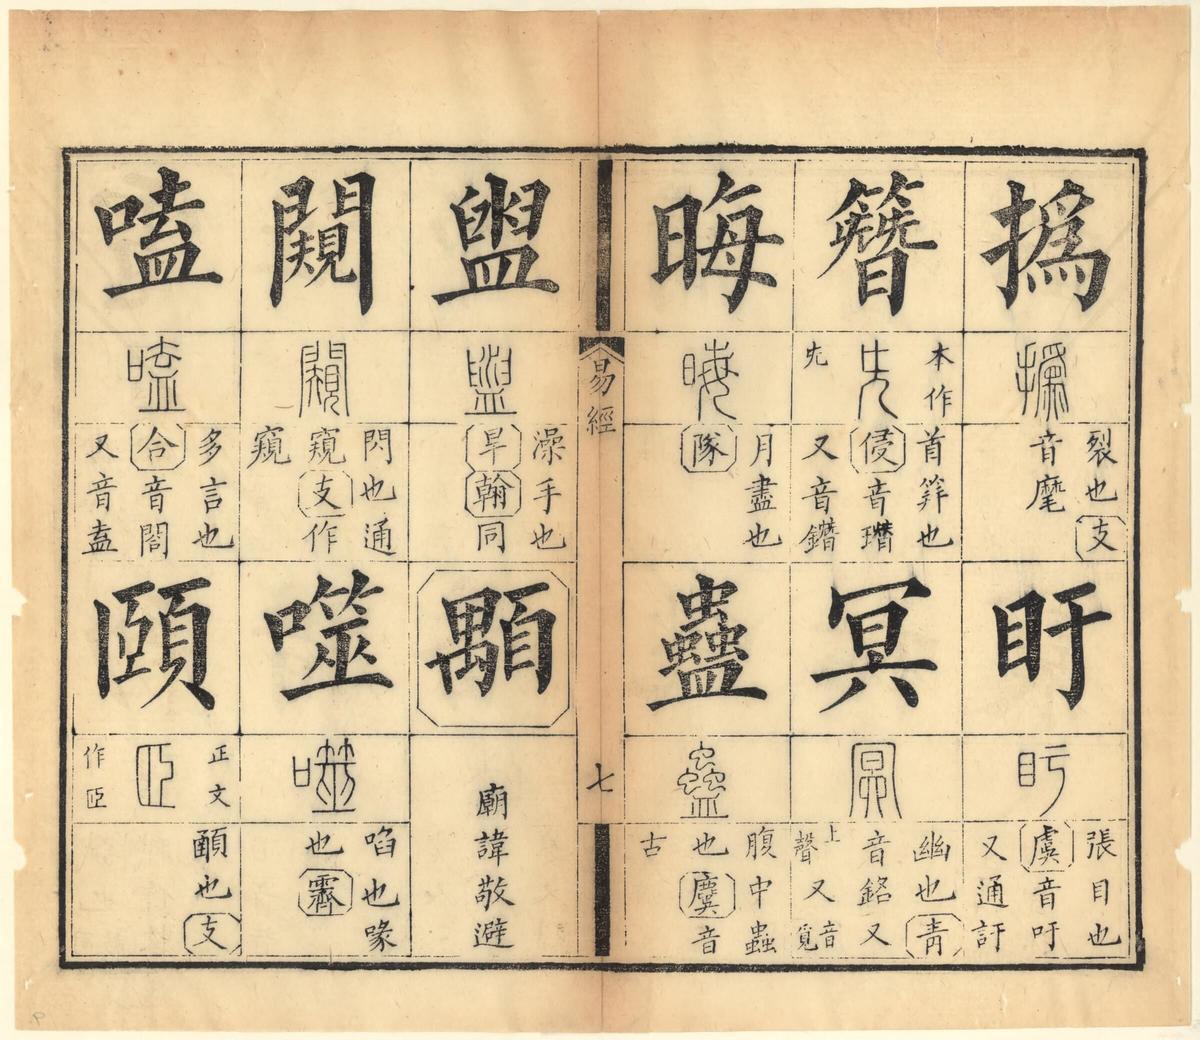 撝
撝
裂也支
音麾
盱
盱
張目也
虞音吁
又通訏
簪
本作
兂
兂
首筓也
侵音
又音鐕
冥
冥
幽也青
音銘又
上聲又音覓
晦
晦
月盡也
隊
蠱
蠱
腹中蟲
也麌音
古
易經
七
盥
盥
澡手也
旱翰同
顒
廟諱敬避
闚
闚
閃也通
窺支作
窺
噬
噬
啗也喙
也霽
嗑
嗑
多言也
合音閤
又音盍
頤
正文
𦣞
作𦣞
顄也支